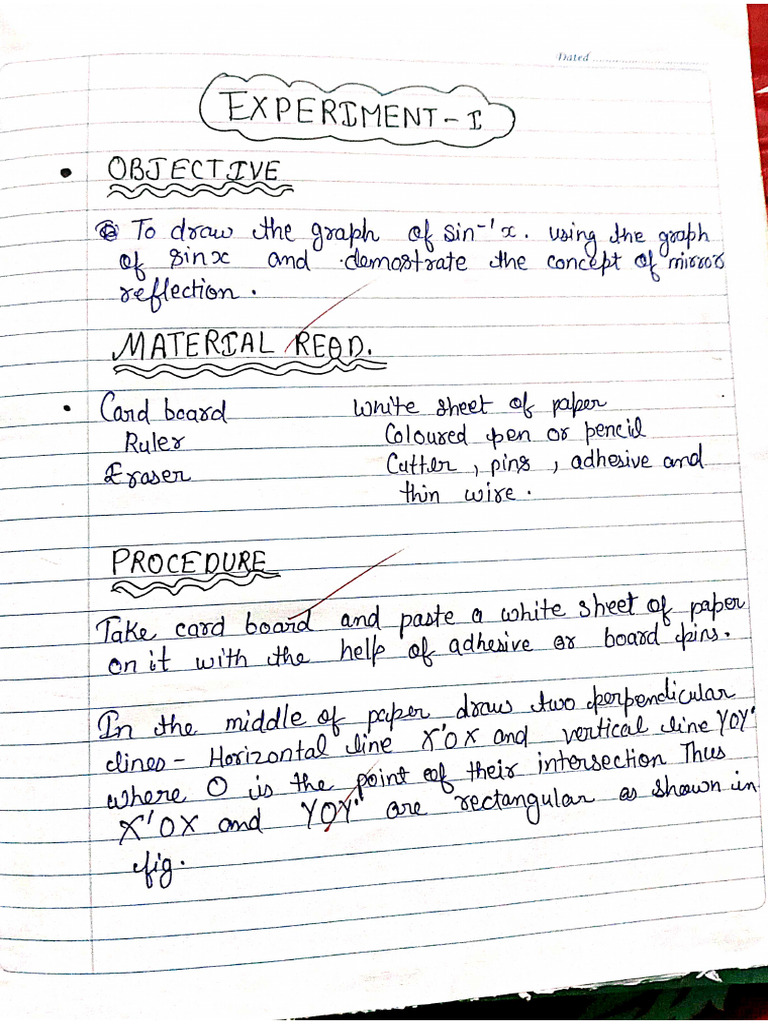 Dated
EXPERIMENT - I
• OBJECTIVE
To draw the graph of sin⁻¹x. using the graph
of sinx and demostrate the concept of mirror
reflection.
MATERIAL REQD.
• Card board White sheet of paper
Ruler Coloured pen or pencil
Eraser Cutter, pins, adhesive and
thin wire.
PROCEDURE
Take card board and paste a white sheet of paper
on it with the help of adhesive or board pins.
In the middle of paper draw two perpendicular
lines - Horizontal line X'OX and vertical line YOY'
where O is the point of their intersection Thus
X'OX and YOY' are rectangular as shown in
fig.